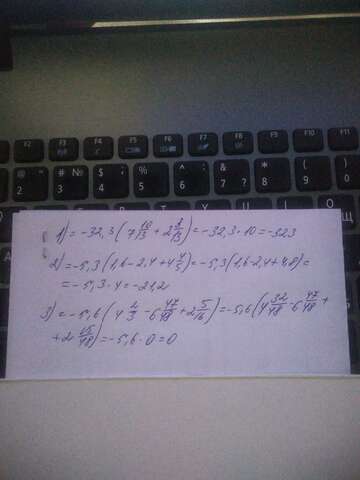 F2 F3 F4 F5 F6 F7 F8 F9 F10 F11
@ 2 " № # 3 ; $ 4 % 5 : ^ 6 ? & 7 * 8 ( 9 ) 0
1) = -32,3 (7 10/13 + 2 3/13) = -32,3 · 10 = -323
2) = -5,3 (1,6 - 2,4 + 4 4/5) = -5,3 (1,6 - 2,4 + 4,8) =
= -5,3 · 4 = -21,2
3) = -5,6 (4 2/3 - 6 47/48 + 2 5/16) = -5,6 (4 32/48 - 6 47/48 +
+ 2 15/48) = -5,6 · 0 = 0